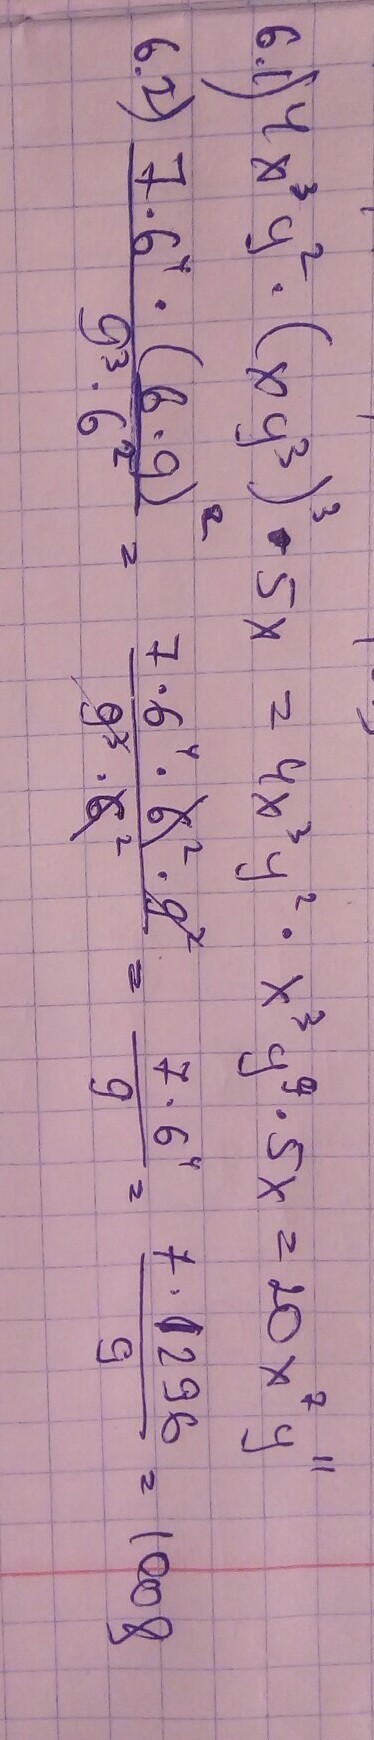 6.1) 4x³y² · (xy³)³ · 5x = 4x³y² · x³y⁹ · 5x = 20x⁷y¹¹
6.2) (7·6⁴ · (6·9)²) / (9³ · 6²) = (7·6⁴ · 6² · 9²) / (9³ · 6²) = (7·6⁴) / 9 = (7·1296) / 9 = 1008